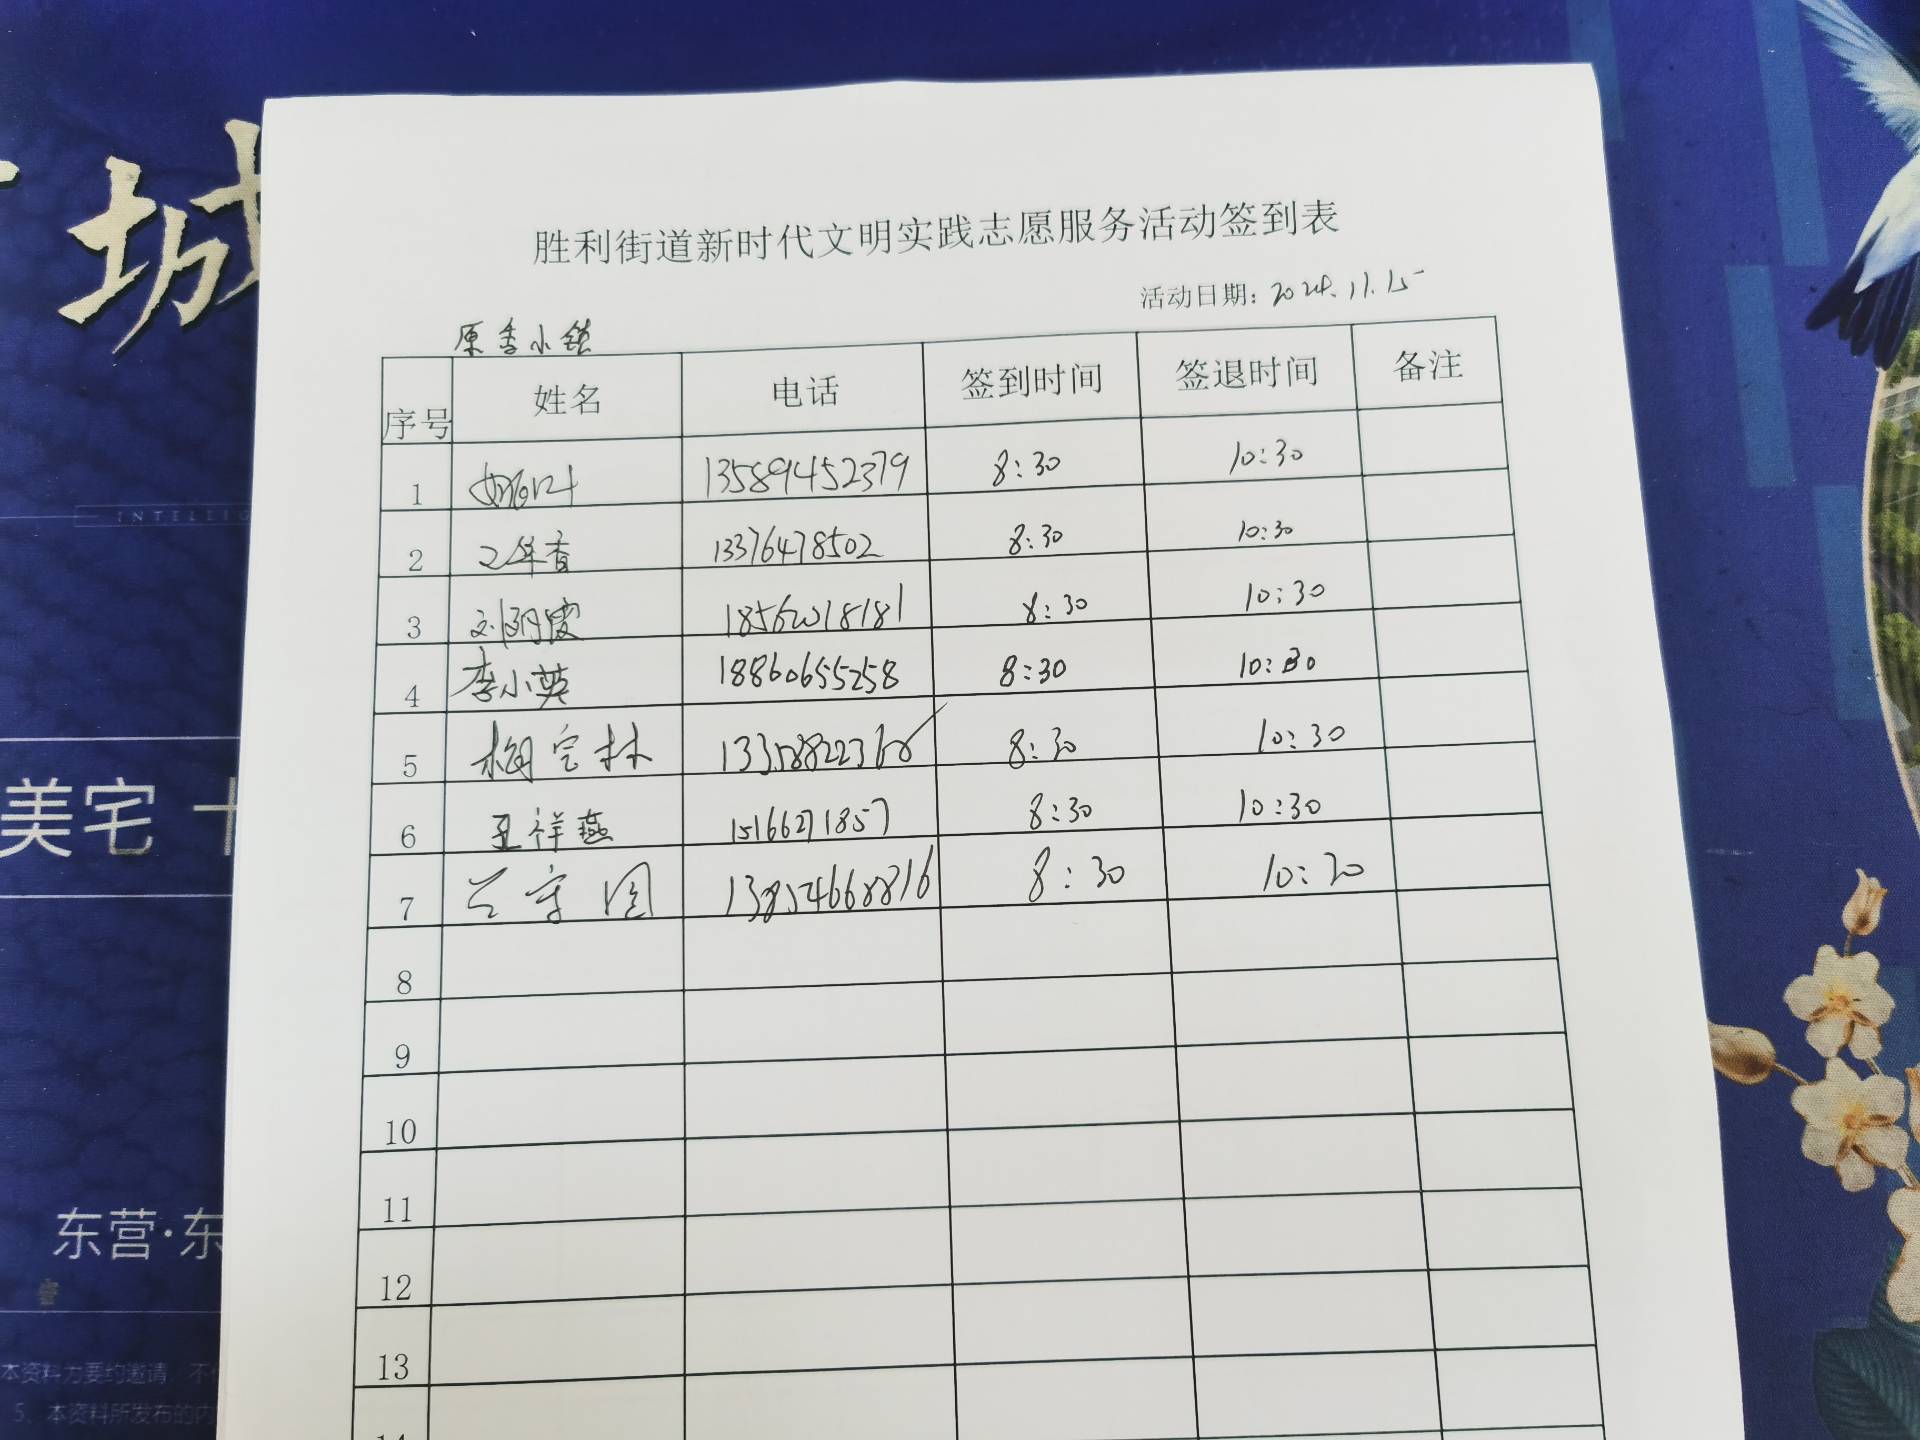 城
INTELLIG
美宅 十
东营·东
本资料为要约邀请，不
5、本资料所发布的内
胜利街道新时代文明实践志愿服务活动签到表
活动日期：2024.11.15
原香小镇
序号 姓名 电话 签到时间 签退时间 备注
1 13589452379 8:30 10:30
2 13376478502 8:30 10:30
3 刘丽霞 8:30 10:30
4 李小英 18860655258 8:30 10:30
5 8:30 10:30
6 王祥燕 15166271857 8:30 10:30
7 8:30 10:30
8
9
10
11
12
13
14